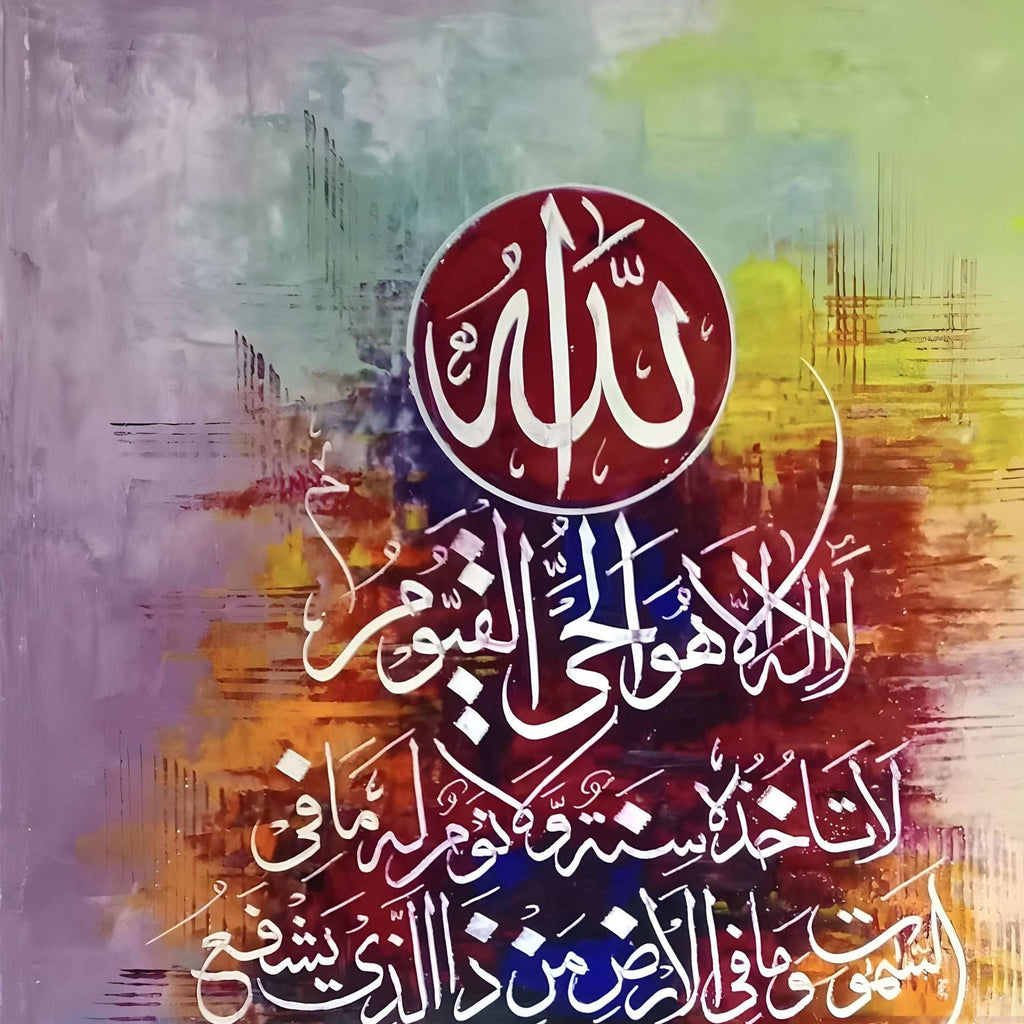 اللّٰهُ
لَاۤ اِلٰهَ اِلَّا هُوَ الْحَیُّ الْقَیُّوْمُ
لَا تَاْخُذُهٗ سِنَةٌ وَّلَا نَوْمٌ لَهٗ مَا فِی
السَّمٰوٰتِ وَمَا فِی الْاَرْضِ مَنْ ذَا الَّذِیْ یَشْفَعُ